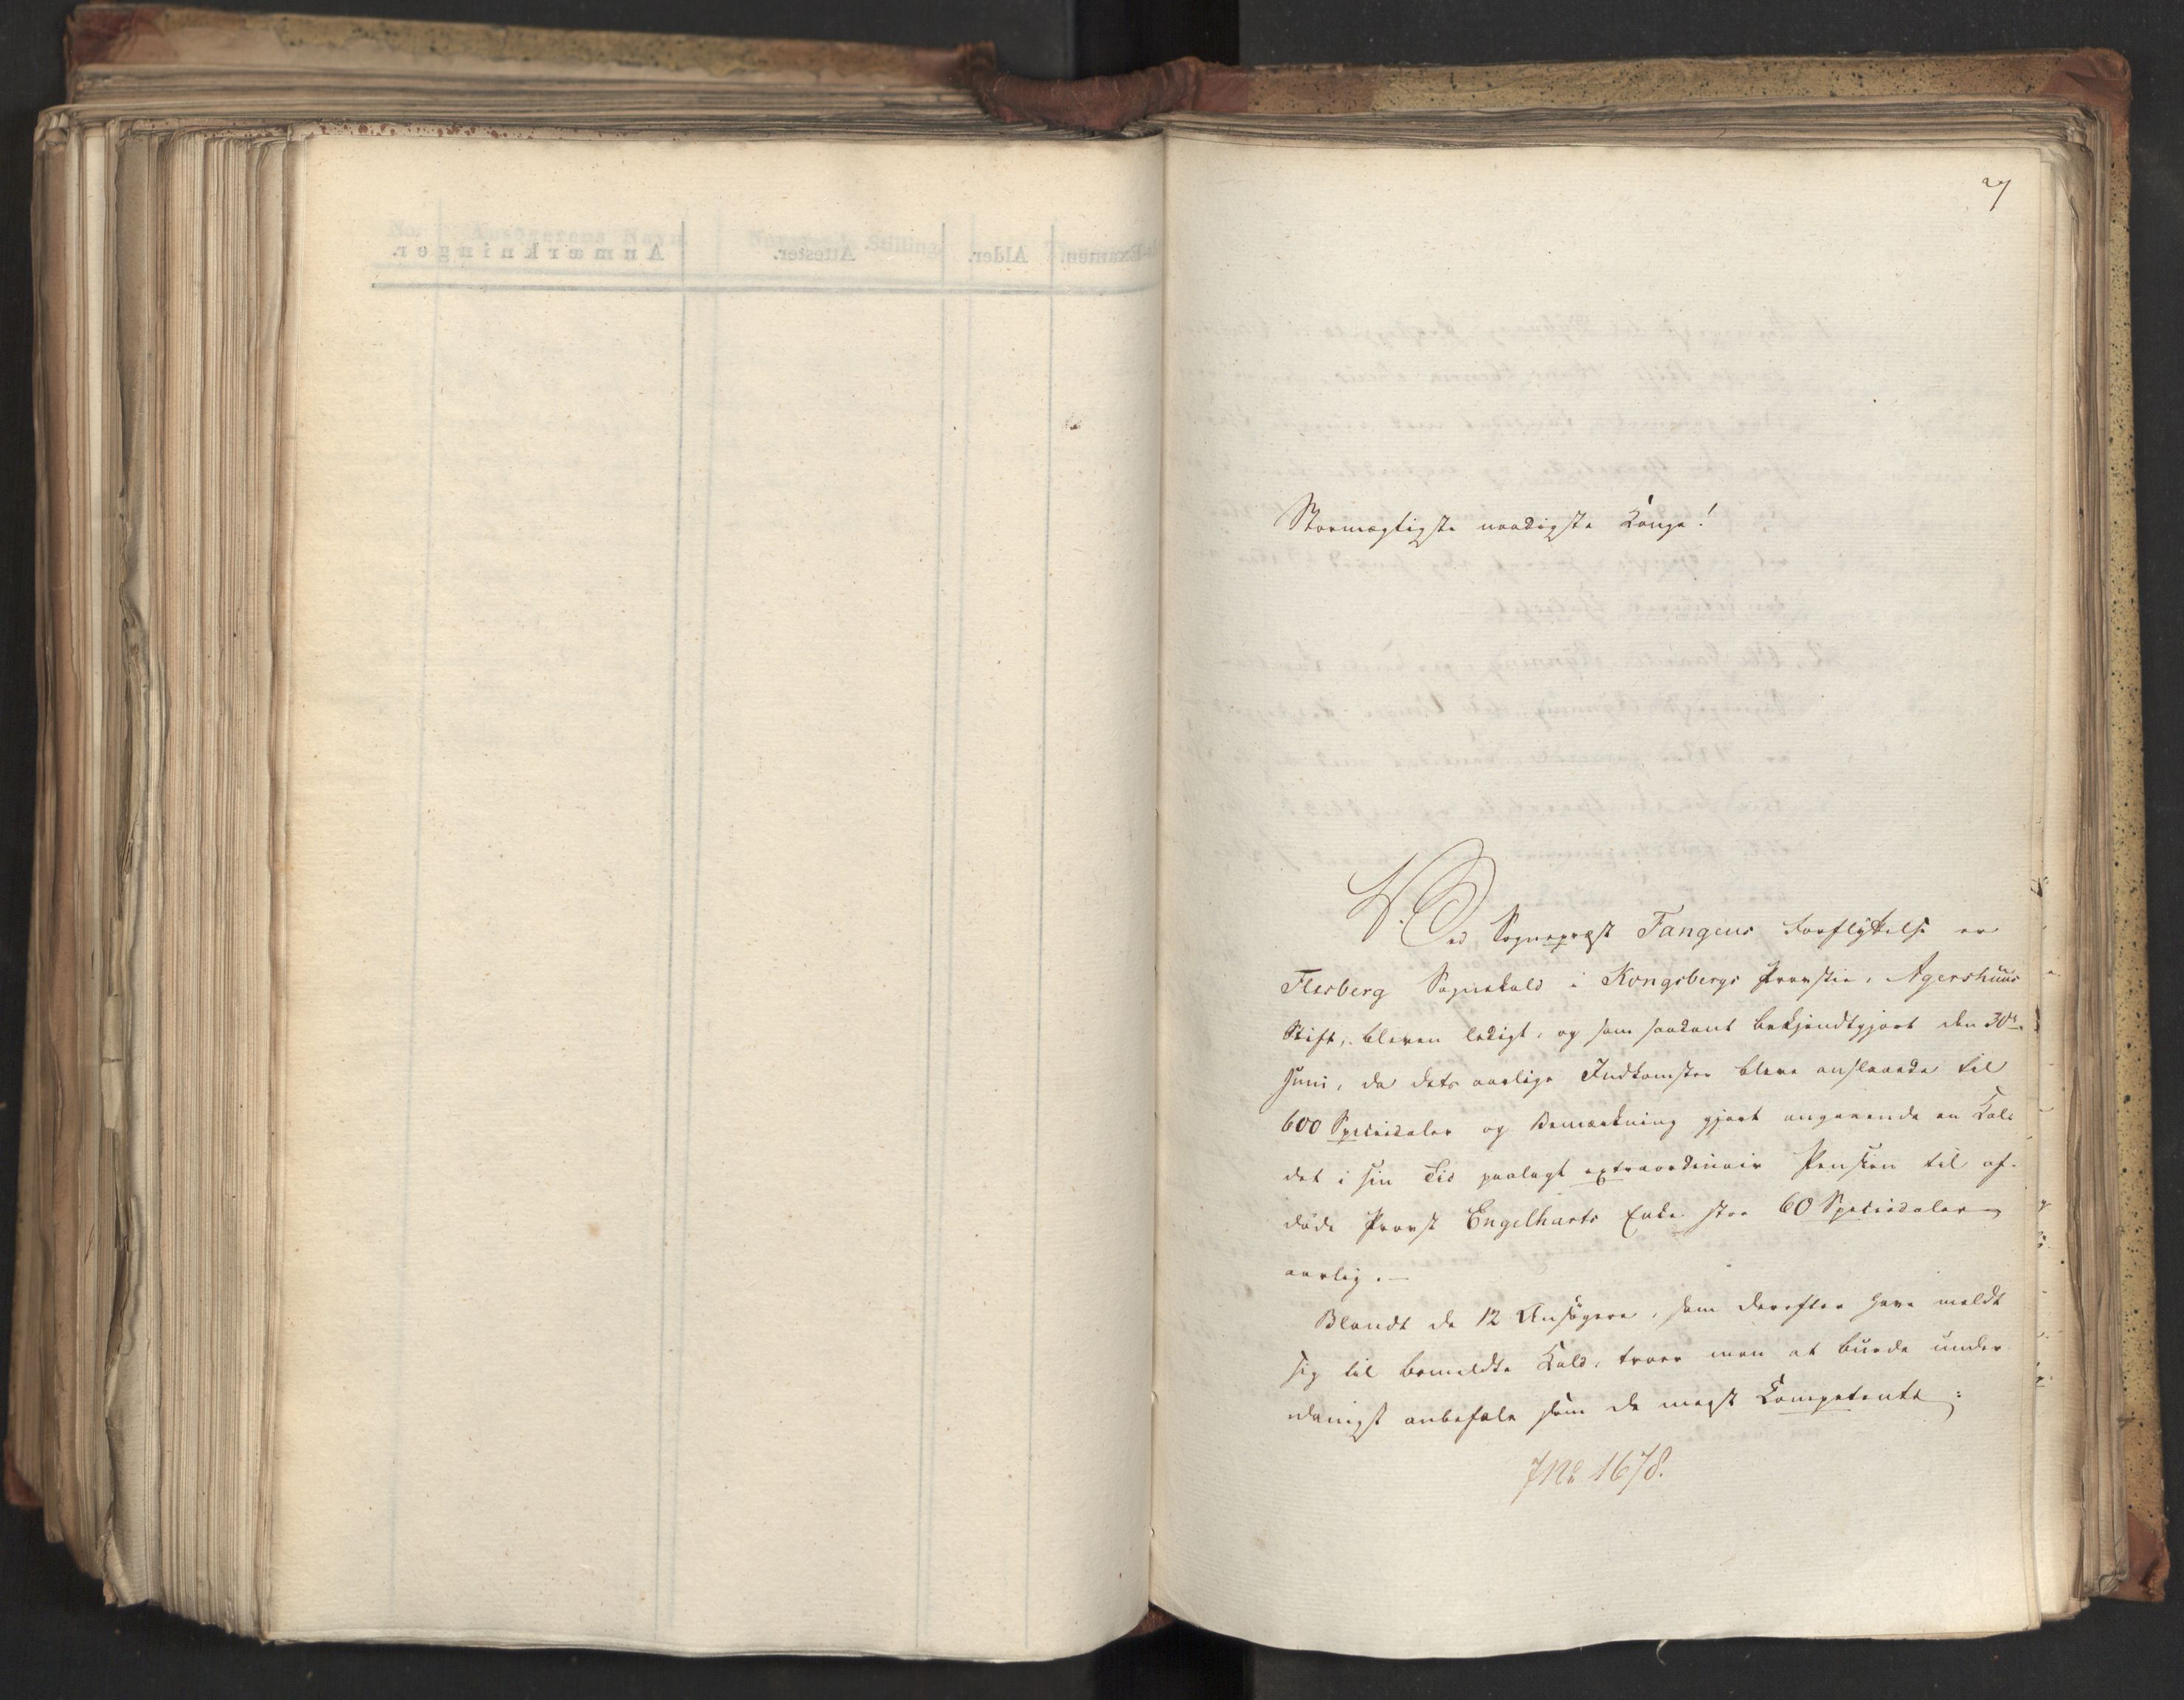 27
Stormægtigste naadigste Konge!
Ved Sognepræst Tangens Forflyttelse er
Flesberg Sognekald i Kongsbergs Provstie, Agershuus
Stift, bleven ledigt, og som saadant bekjendtgjort den 30te
Juni, da dets aarlige Indkomster bleve anslaaede til
600 Speciedaler og Bemærkning gjort angaaende en Kal-
det i sin Tid paalagt extraordinair Pension til af-
døde Provst Engelharts Enke stor 60 Speciedaler
aarlig.—
Blandt de 12 Ansøgere, som derefter have meldt
sig til bemeldte Kald, troer man at burde under
danigst anbefale som de meest Competente:
JNo 1678.